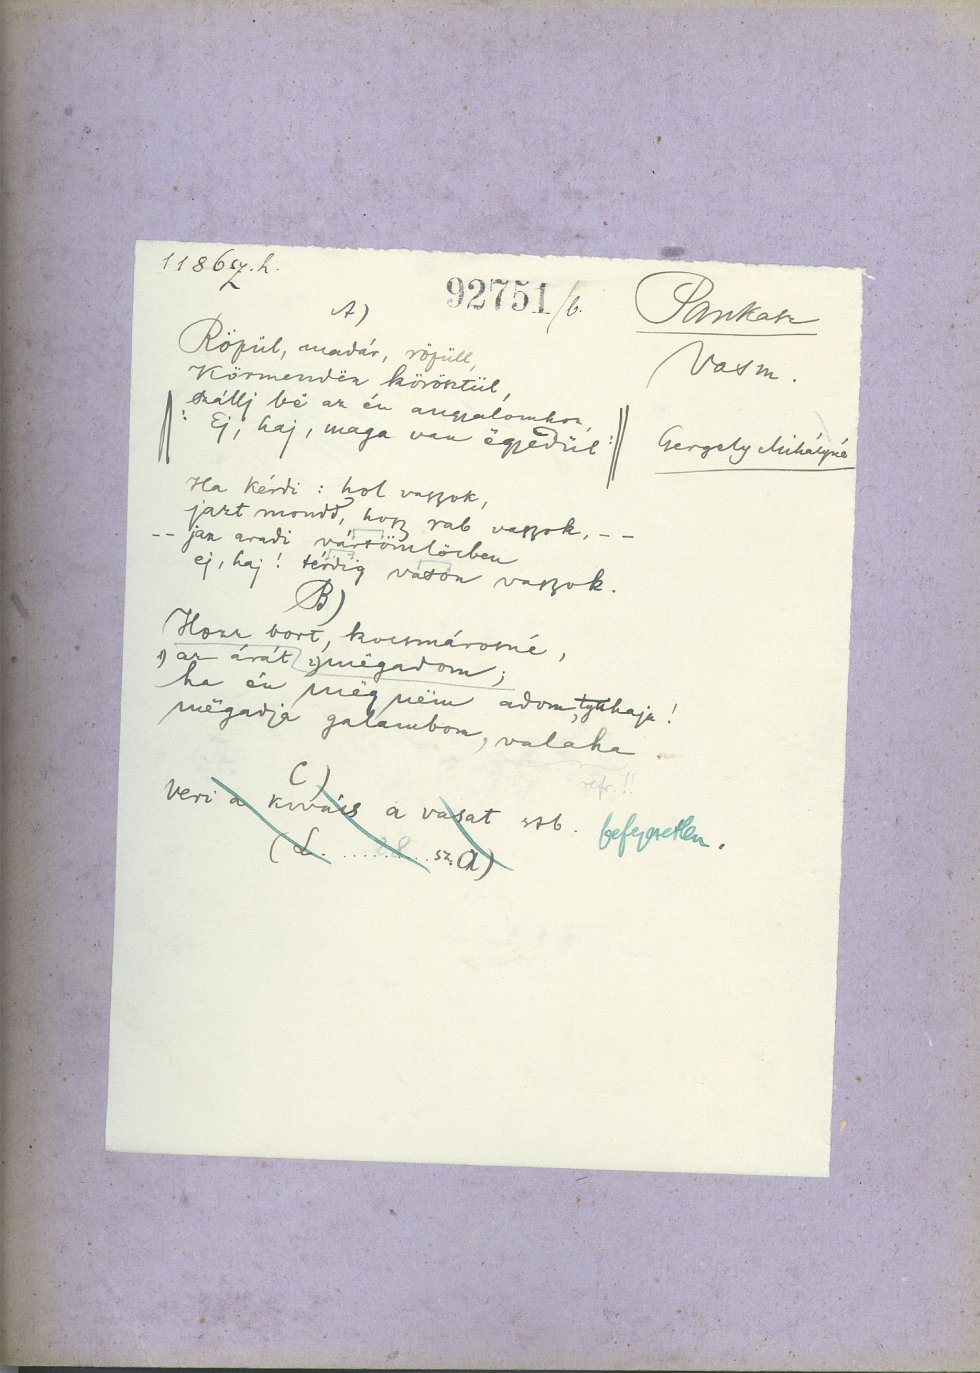 1186 sz. h.
92751/b.
Pankasz
Vasm.
Gergely Mihályné
A)
Röpül, madár, röpüll,
Körmendën körösztül,
szállj bé az én angyalomhoz,
Ej, haj, maga van ëgyedül
Ha kérdi: hol vagyok,
jazt mondd, hogy rab vagyok, --
-- jaz aradi vártömlöcben
ej, haj! térdig vason vagyok.
B)
Hozz bort, kocsmárosné,
1) az árát 2) mëgadom;
ha én mëg nëm adom, tyuhaja!
mëgadja galambom, valaha
refr.!!
C)
Veri a kovács a vasat stb. befejezetlen.
(L. ........ sz. a)